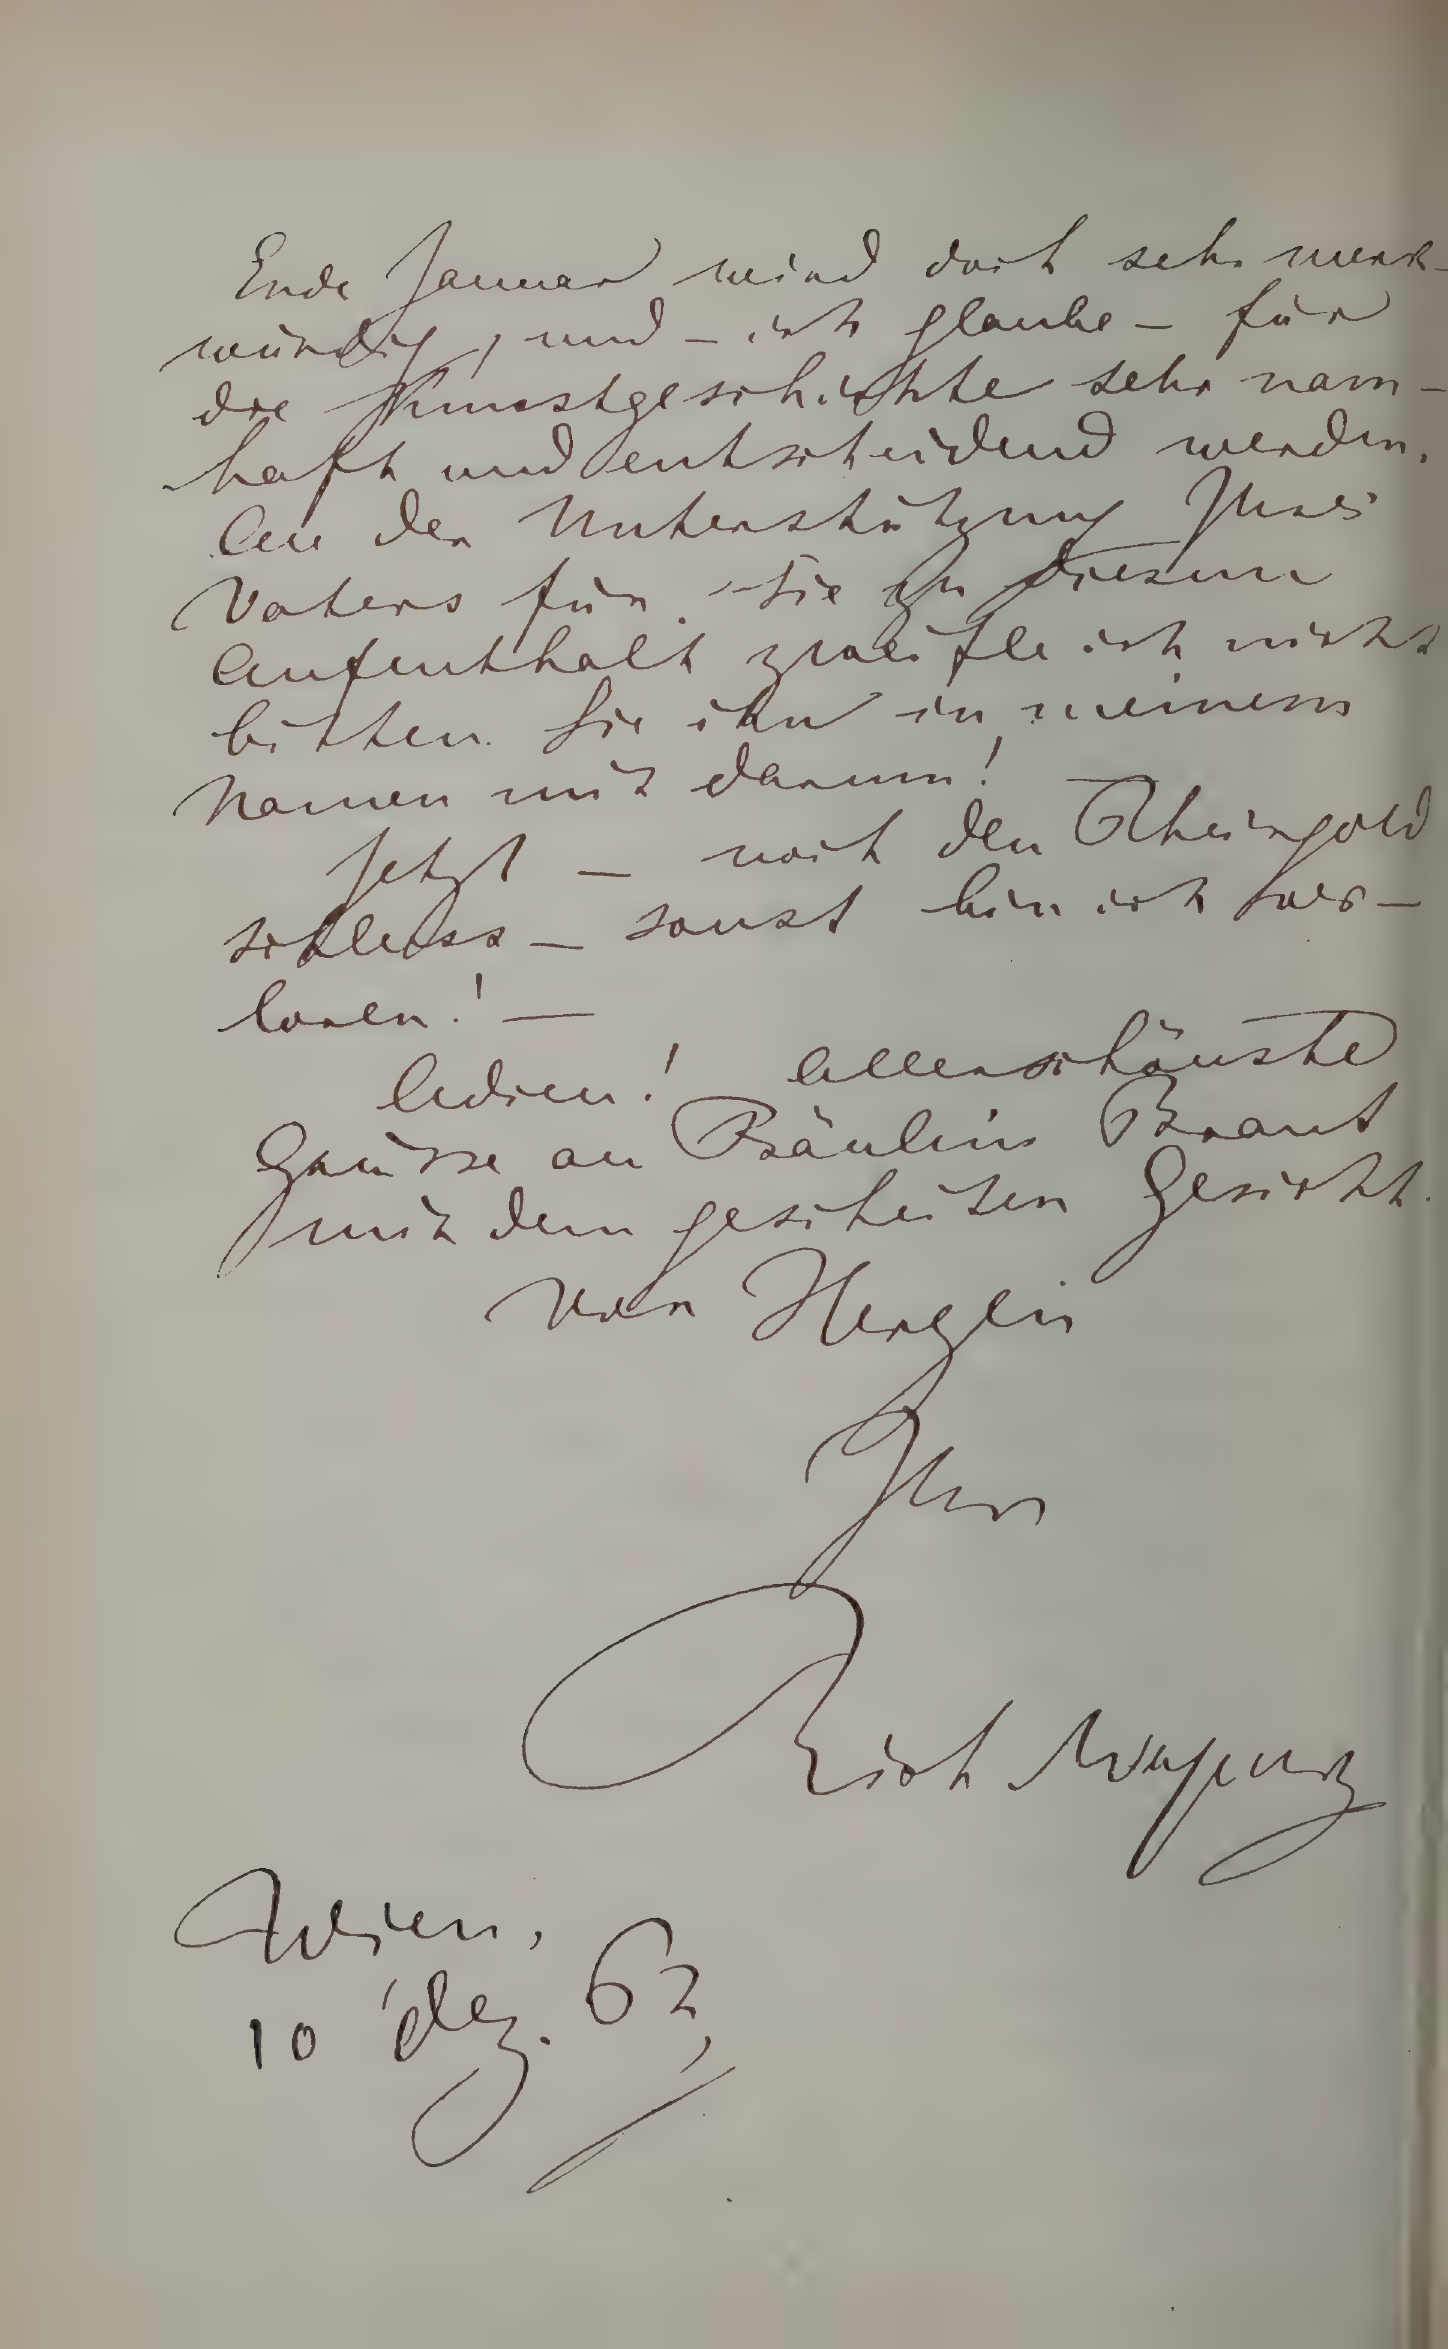 Ende Januar wird dort sehr merk-
würdig, und – ich glaube – für
die Kunstgeschichte sehr nam-
haft und entscheidend werden.
An der Unterstützung Ihres
Vaters für Sie zu diesem
Aufenthalt zweifle ich nicht
bitten Sie ihn in meinem
Namen mit darum!
Jetzt – noch den Rheingold
schluss – sonst bin ich ver-
loren! –
Adieu! Allerschönste
Grüsse an Fräulein Braut
mit dem gescheiten Gesicht.
Von Herzen
Ihr
Rich Wagner
Wien,
10 dez. 62,